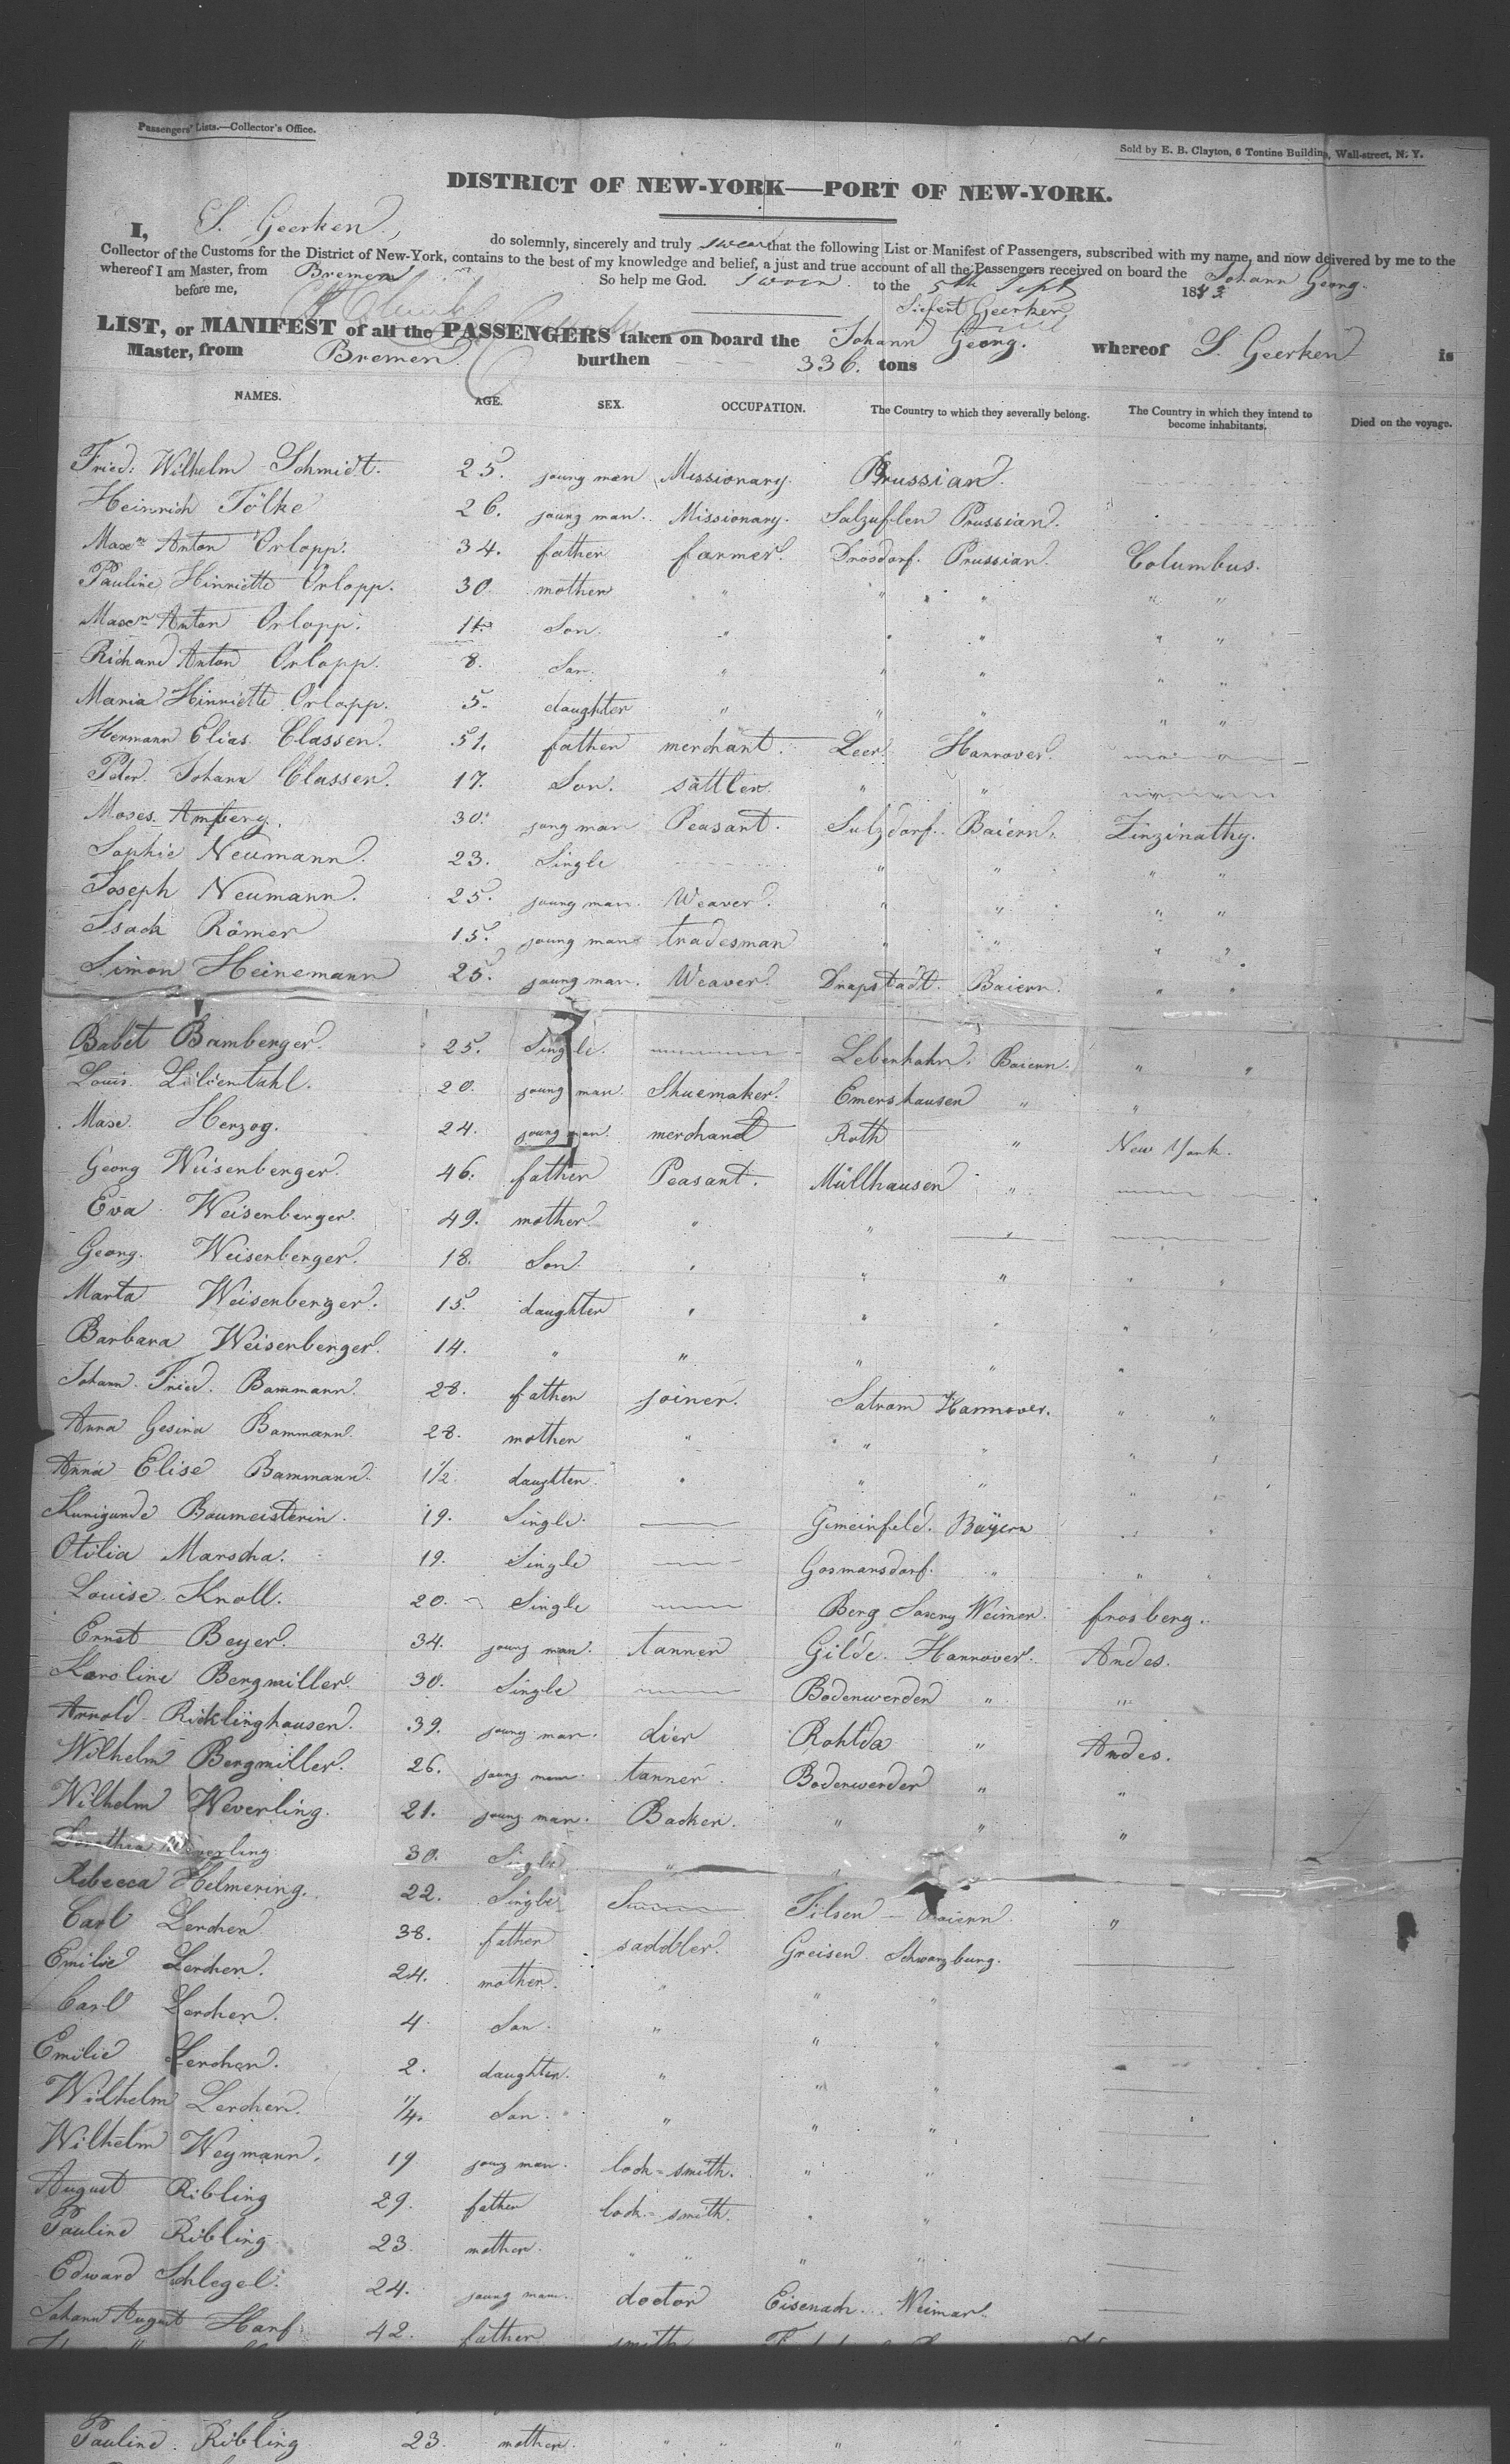 Passengers' Lists.—Collector's Office.
Sold by E. B. Clayton, 6 Tontine Building, Wall-street, N. Y.
DISTRICT OF NEW-YORK—PORT OF NEW-YORK.
I, S. Geerken, do solemnly, sincerely and truly swear that the following List or Manifest of Passengers, subscribed with my name, and now delivered by me to the
Collector of the Customs for the District of New-York, contains to the best of my knowledge and belief, a just and true account of all the Passengers received on board the Johann Georg.
whereof I am Master, from Bremen So help me God. Sworn to the 5th Sept 1843.
before me, Siefert Geerken
LIST, or MANIFEST of all the PASSENGERS taken on board the Johann Georg. whereof S. Geerken is
Master, from Bremen burthen 336. tons
NAMES. AGE. SEX. OCCUPATION. The Country to which they severally belong. The Country in which they intend to become inhabitants. Died on the voyage.
Fried: Wilhelm Schmidt. 25. young man Missionary. Prussian.
Heinrich Tölke 26. young man. Missionary. Salzuflen Prussian.
Maxn Anton Orlopp. 34. father farmer. Drosdorf. Prussian. Columbus.
Pauline Hinriette Orlopp. 30. mother " " " " "
Maxn Anton Orlopp. 11. Son. " " " " "
Richard Anton Orlopp. 8. Son. " " " " "
Maria Hinriette Orlopp. 5. daughter " " " " "
Hermann Elias Classen. 51. father merchant. Leer. Hannover.
Peter Johann Classen. 17. Son. sattler. " "
Moses Amberg. 30. jong man Peasant. Sulzdorf. Baiern. Zinzinathy.
Sophie Neumann. 23. Single " " " "
Joseph Neumann. 25. young man. Weaver. " " " "
Isack Römer 15. young man tradesman " " " "
Simon Heinemann 25. young man. Weaver. Drapstadt. Baiern. " "
Babet Bamberger. 25. Single. Lebenhahn. Baiern. " "
Louis Lilientahl. 20. young man. Shuemaker. Emershausen " " "
Maxe Herzog. 24. young man. merchand Roth " New York.
Georg Weisenberger. 46. father Peasant. Müllhausen "
Eva Weisenberger. 49. mother " " "
Georg. Weisenberger. 18. Son. " " " " "
Marta Weisenberger. 15. daughter " " " " "
Barbara Weisenberger. 14. " " " " " "
Johann Fried. Bammann. 28. father joiner. Satrom Hannover. " "
Anna Gesina Bammann. 28. mother " " " " "
Anna Elise Bammann. 1½ daughter " " " " "
Kunigunde Baumeisterin. 19. Single. Gemeinfeld. Bayern " "
Otilia Marscha. 19. Single Gosmansdorf. " " "
Louise Knoll. 20. Single Berg Saxeny Weimer. frosberg.
Ernst Beyer. 34. young man. tanner Gilde. Hannover. Andes.
Karoline Bergmiller. 30. Single Bodenwerder " "
Arnold Ricklinghausen. 39. young man. dier Rohlda " Andes.
Wilhelm Bergmiller. 26. young man. tanner. Bodenwerder " "
Wilhelm Weverling. 21. young man. Backer. " " "
Dorothea Weverling 30. Single " "
Rebecca Helmering. 22. Single Tilsen Baiern. "
Carl Lerchen 38. father saddler. Greisen Schwarzburg.
Emilie Lerchen. 24. mother. " " "
Carl Lerchen. 4. Son. " " "
Emilie Lerchen. 2. daughter. " " "
Wilhelm Lerchen. ¼. Son. " " "
Wilhelm Weymann. 19 young man. lock-smith. " "
August Ribling 29. father lock-smith. " "
Pauline Ribling 23. mother. " " " "
Edward Schlegel. 24. young man. doctor Eisenach. Weimar.
Johann August Hanf 42. father smith
Pauline. Ribling 23. mother. " " " "